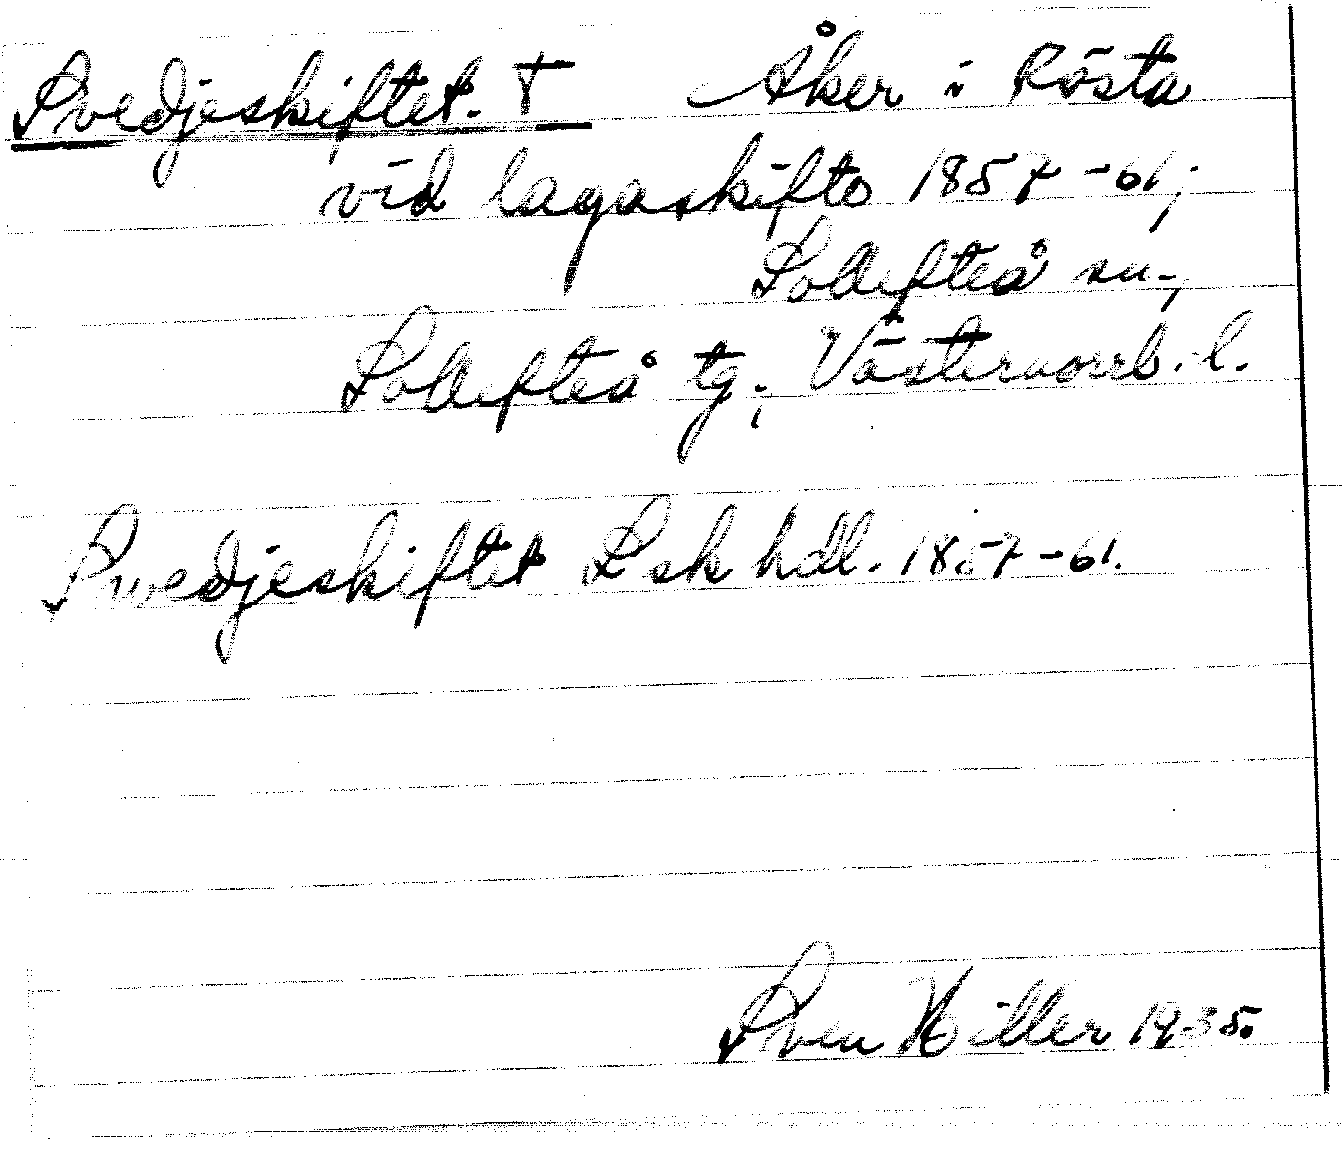 Svedjeskiftet. † Åker i Rösta
vid lagaskifte 1857-61;
Sollefteå sn.,
Sollefteå tg; Västernorrl. l.
Svedjeskiftet L sk hdl. 1857-61.
Sven Hiller 1935.